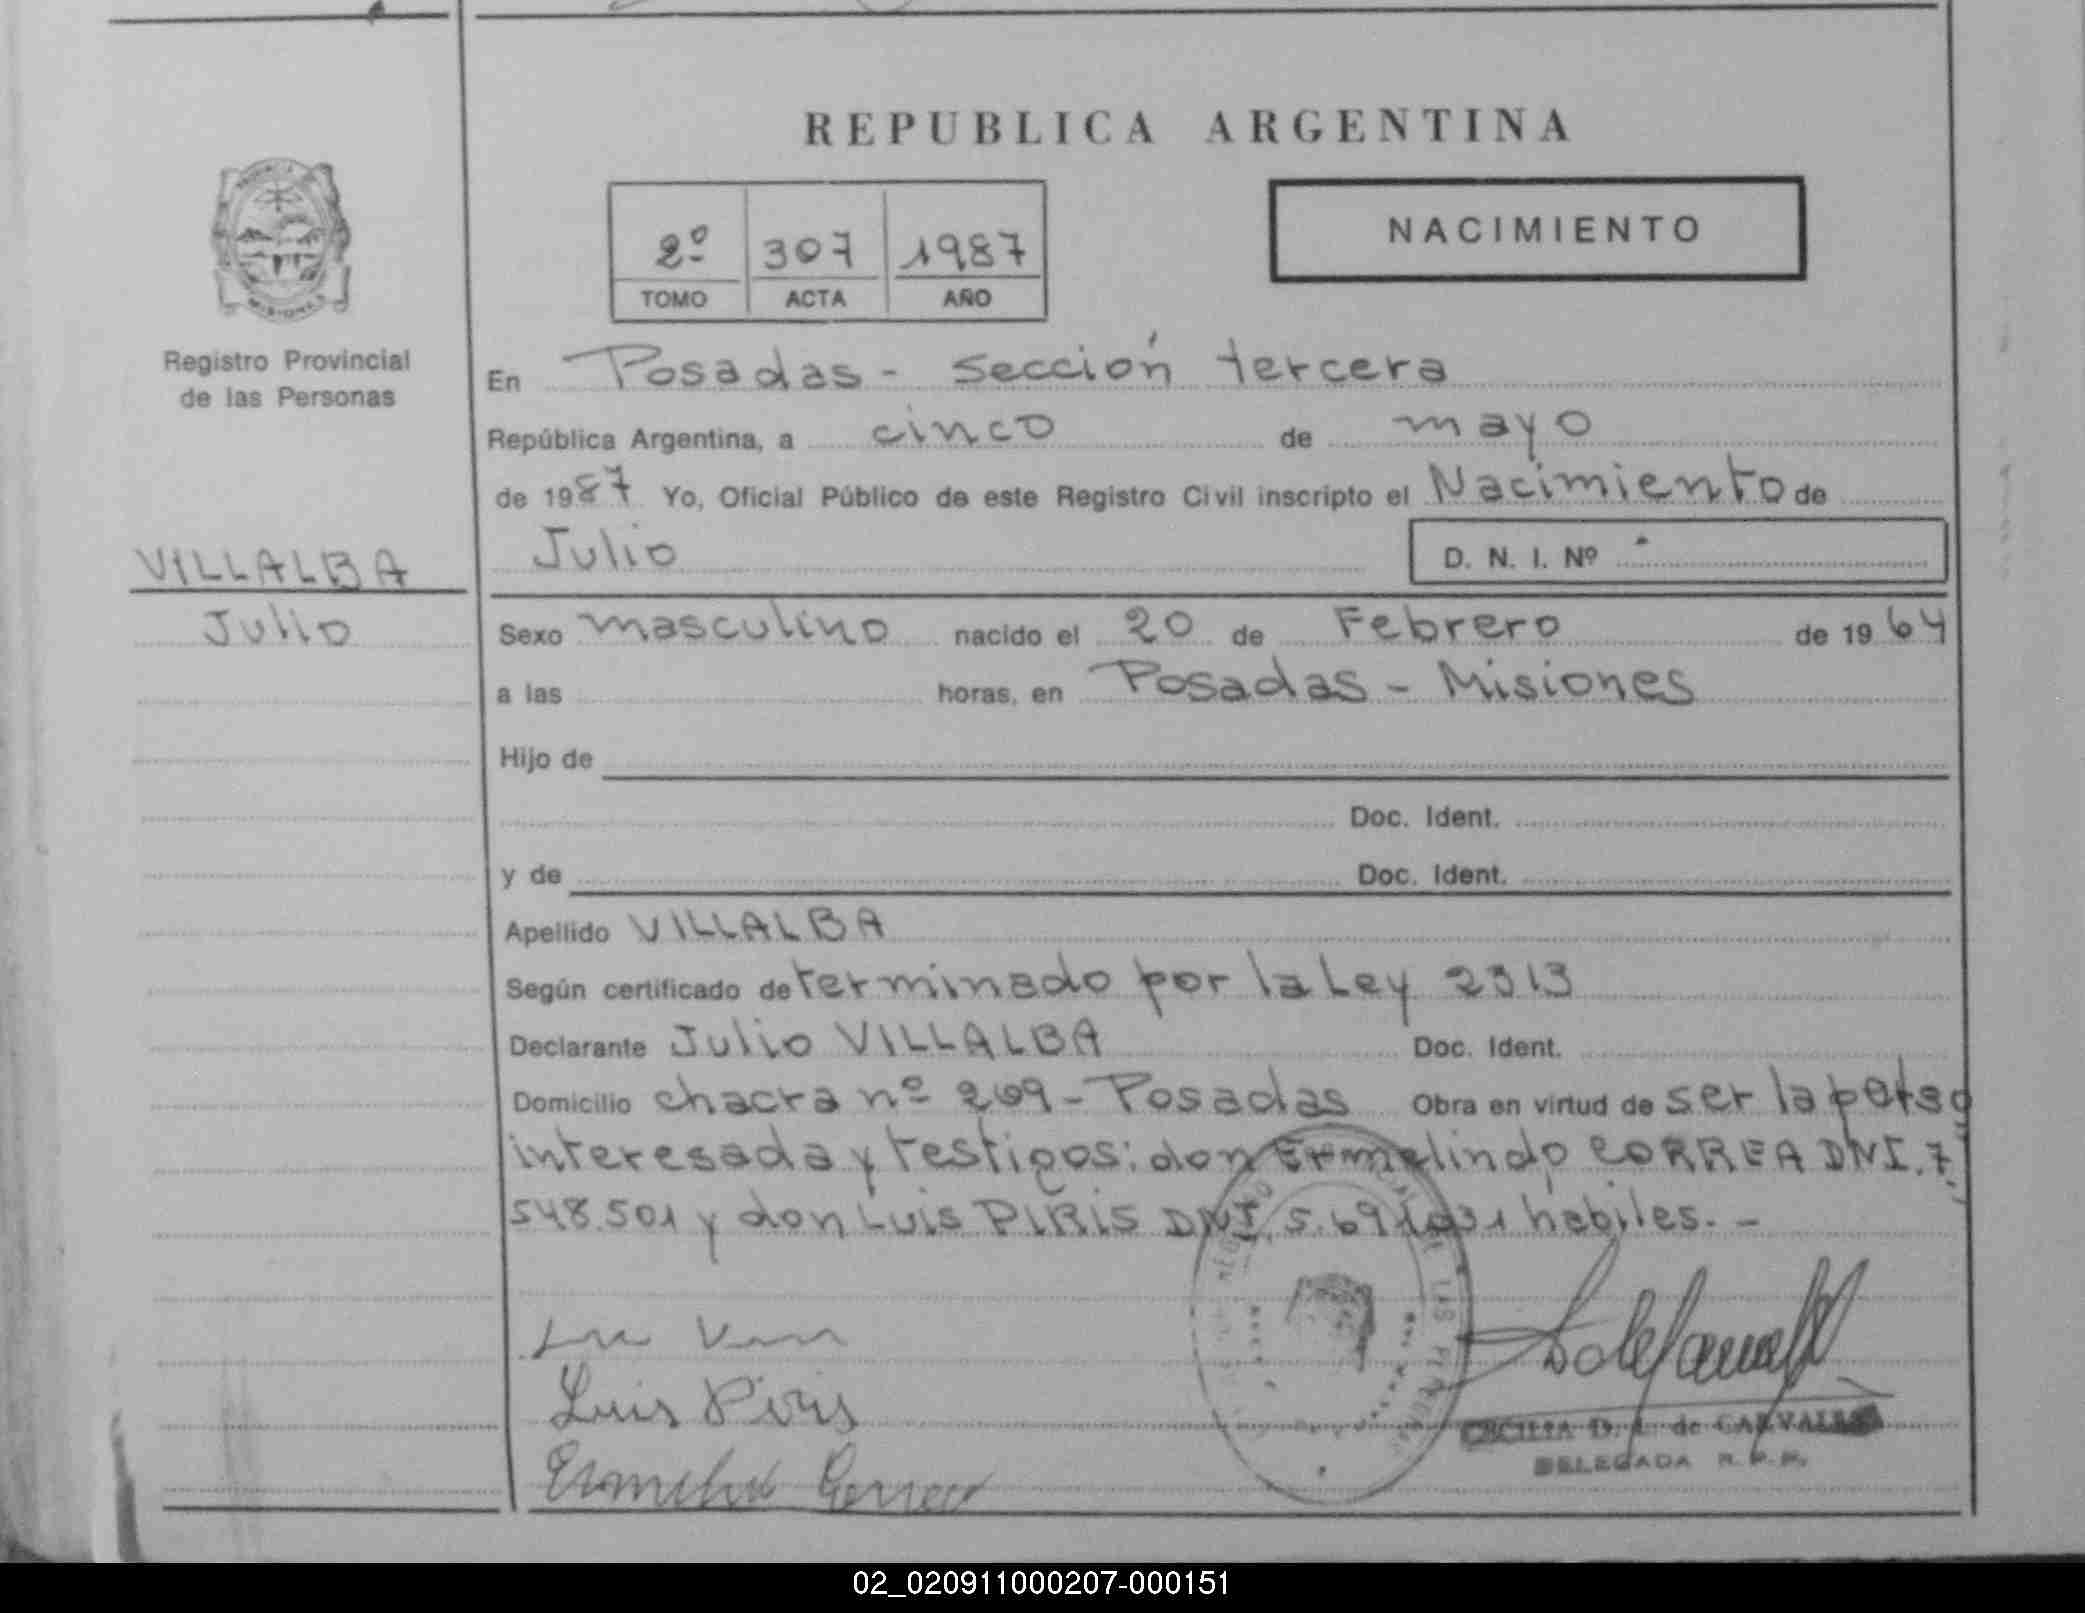 REPUBLICA ARGENTINA
NACIMIENTO
2º 307 1987
TOMO ACTA AÑO
Registro Provincial
de las Personas
VILLALBA
Julio
En Posadas - Sección tercera
República Argentina, a cinco de mayo
de 1987 Yo, Oficial Público de este Registro Civil inscripto el Nacimiento de
Julio D. N. I. Nº
Sexo masculino nacido el 20 de Febrero de 1964
a las horas, en Posadas - Misiones
Hijo de
Doc. Ident.
y de Doc. Ident.
Apellido VILLALBA
Según certificado determinado por la Ley 2313
Declarante Julio VILLALBA Doc. Ident.
Domicilio chacra nº 269 - Posadas Obra en virtud de ser la
interesada y testigos: don Ermelindo CORREA DNI. 7.
548.501 y don Luis PIRIS DNI. habiles. -
Luis Piris
CECILIA D. L. de CARVALLO
DELEGADA R. P. P.
02_020911000207-000151